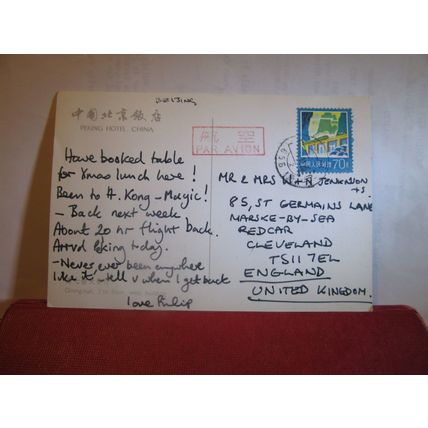 BEIJING
中国北京饭店
PEKING HOTEL, CHINA
航 空
PAR AVION
中国人民邮政 70分
Have booked table
for Xmas lunch here!
Been to H. Kong - Magic!
- Back next week
About 20 hr flight back.
Arrvd Peking today.
- Never ever been anywhere
like it - tell u when I get back
love Philip
MR & MRS W & N JENKINSON
85, ST GERMAINS LANE
MARSKE-BY-SEA
REDCAR
CLEVELAND
TS11 7EL
ENGLAND
UNITED KINGDOM.